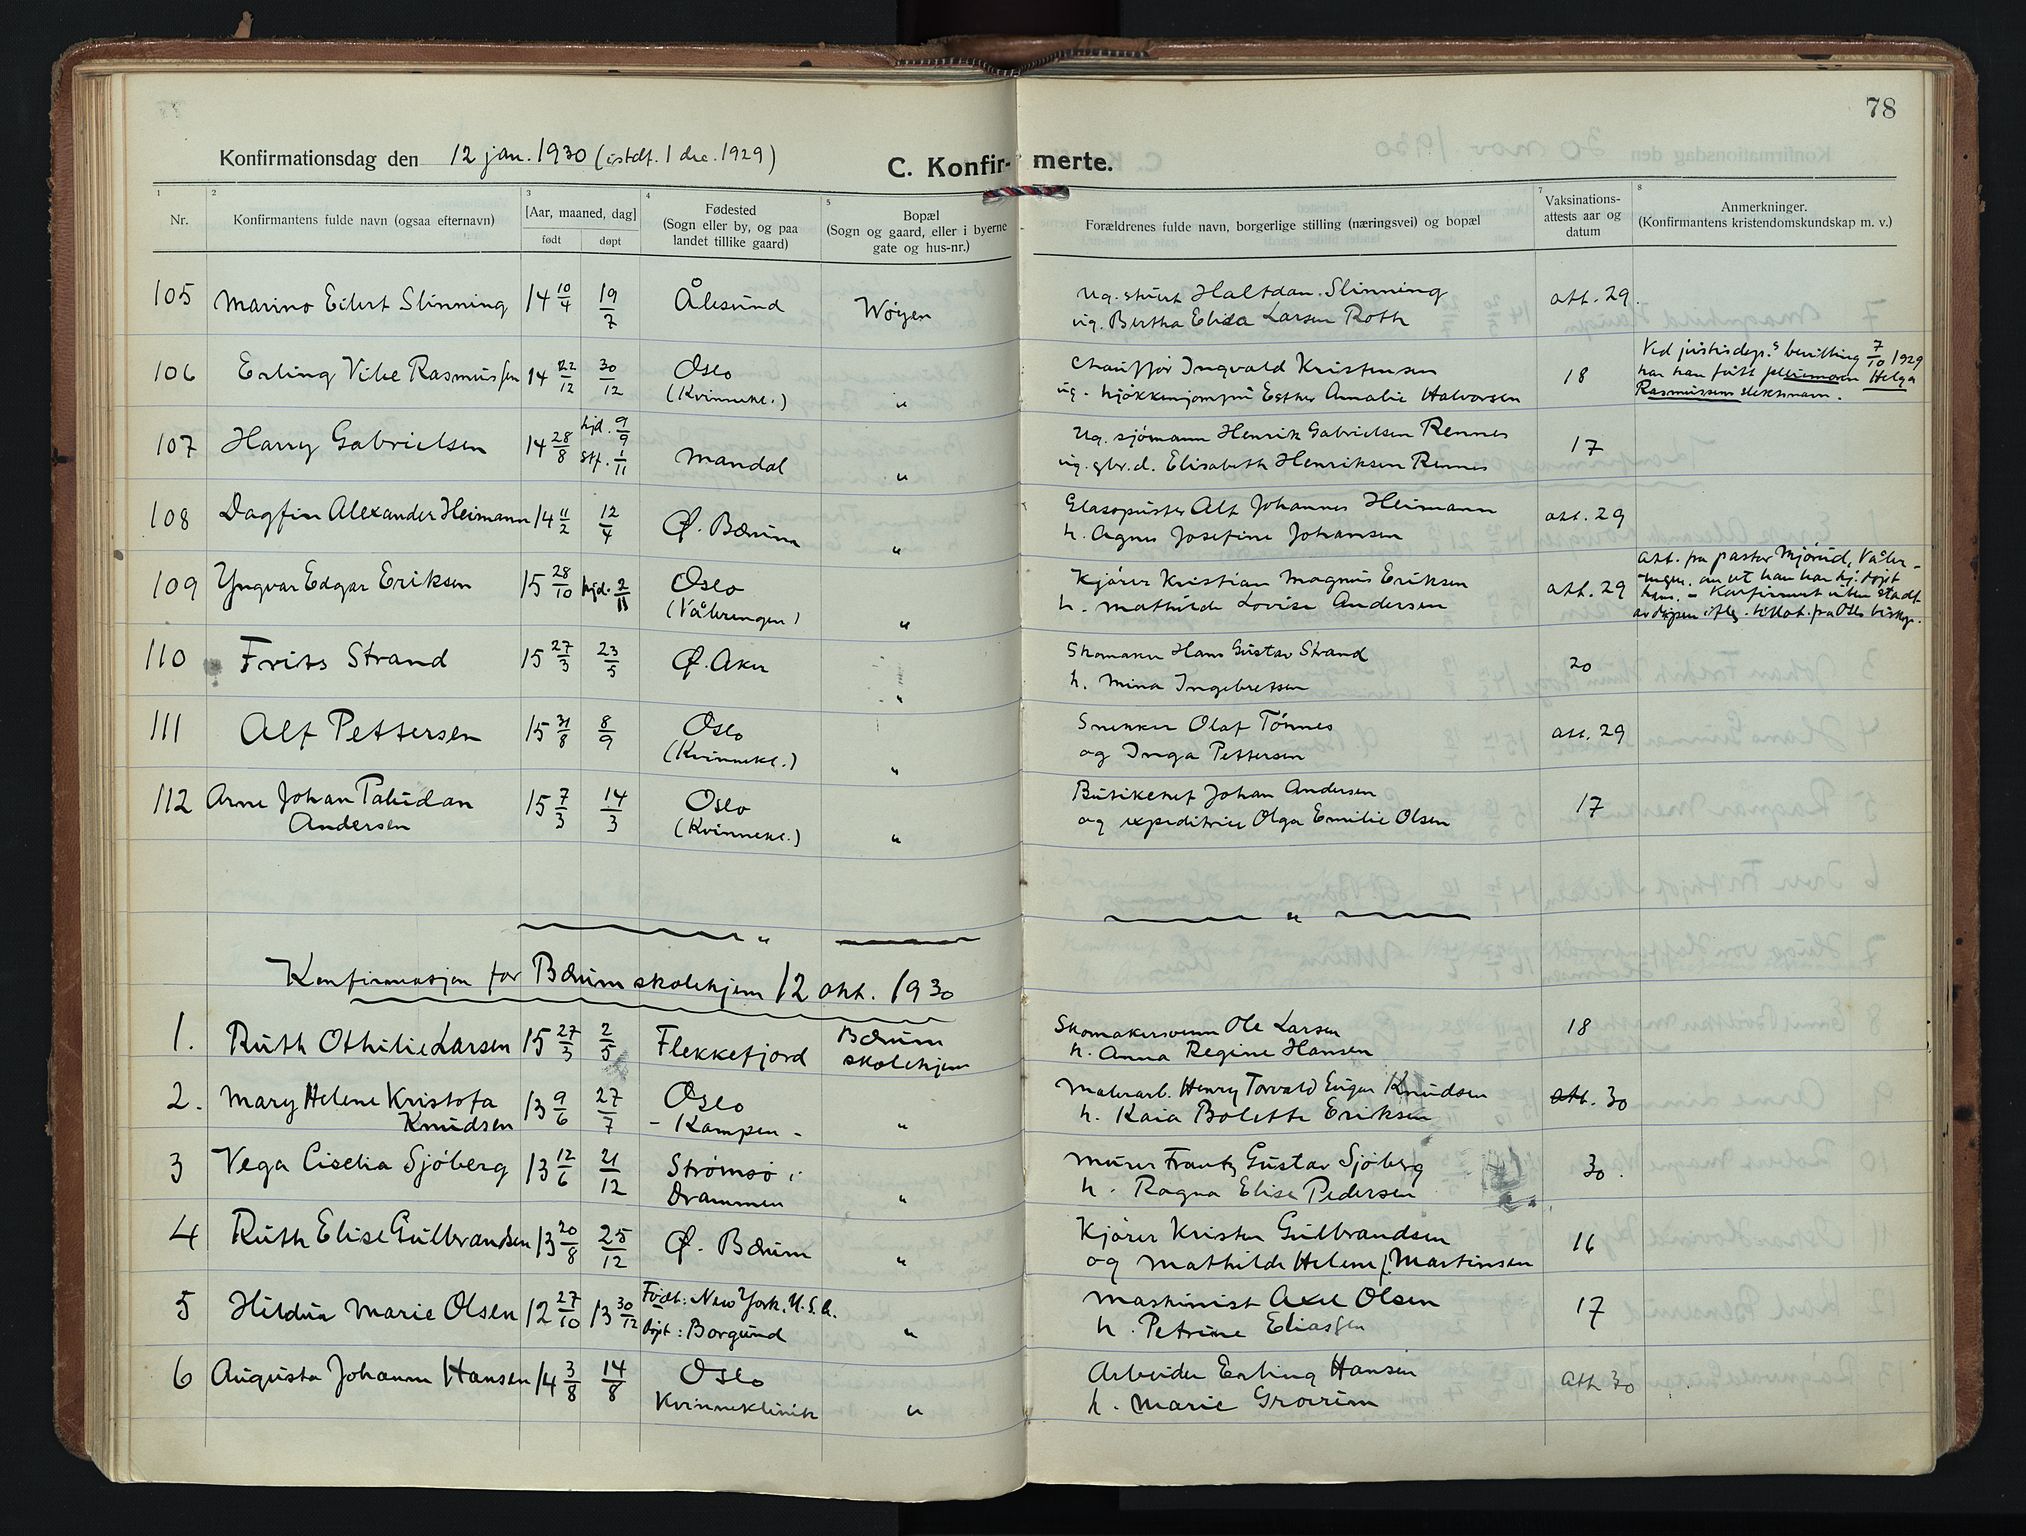 78
Konfirmationsdag den 12 jan. 1930 (istdf. 1 dec. 1929)
C. Konfirmerte.
1 2 3 4 5 7 8
Nr.
Konfirmantens fulde navn (ogsaa efternavn)
[Aar, maaned, dag]
født døpt
Fødested
(Sogn eller by, og paa
landet tillike gaard)
Bopæl
(Sogn og gaard, eller i byerne
gate og hus-nr.)
Forældrenes fulde navn, borgerlige stilling (næringsvei) og bopæl
Vaksinations-
attests aar og
datum
Anmerkninger.
(Konfirmantens kristendomskundskap m. v.)
105 Marino Eilert Slinning 14 10/4 19/7 Ålesund Wøyen
Ug. Haltdan Slinning att. 29.
ug. Bertha Elisa Larsen Roth
106 Erling Vibe Rasmussen 14 22/12 30/12 Oslo
(Kvinnekl.) "
Chauffør Ingvald Kristensen 18
ug. kjøkkenjomfru Esther Amalie Halvorsen
Ved justisdep.s bevilling 7/10 1929
har han fått pleiemoren Helga
Rasmussens slektsnavn.
107 Harry Gabrielsen 14 28/8 hjd. 9/9
stf. 1/11 Mandal "
Ug. sjømann Henrik Gabrielsen Rennes 17
ug. gbr.d. Elisabeth Henriksen Rennes
108 Dagfin Alexander Heimann 14 11/2 12/4 Ø. Bærum "
Glasspuster Alf Johannes Heimann att. 29
h. Agnes Josefine Johansen
109 Yngvar Edgar Eriksen 15 28/10 hjd. 2/11 Oslo
(Vålerengen) "
Kjører Kristian Magnus Eriksen att. 29
h. Mathilde Lovise Andersen
att. fra pastor Mjørud, Våler-
engen, om at han har hj. døpt
ham. - Konfirmert uten stadf.
av dåpen iflg. tillat. fra Oslo biskop.
110 Frits Strand 15 27/3 23/5 Ø. Aker "
Skomaker Hans Gustav Strand 20
h. Mina Ingebretsen
111 Alf Pettersen 15 31/8 8/9 Oslo
(Kvinnekl.) "
Snekker Olaf Tønnes att. 29
og Inga Pettersen
112 Arne Johan Paludan
Andersen 15 7/3 14/3 Oslo
(Kvinnekl.) "
Butikchef Johan Andersen 17
og expeditrice Olga Emilie Olsen
" "
Konfirmasjon for Bærum skolehjem 12 okt. 1930
1. Ruth Othilie Larsen 15 27/3 2/5 Flekkefjord Bærum
skolehjem
Skomakersvenn Ole Larsen 18
h. Anna Regine Hansen
2. Mary Helene Kristofa
Knudsen 13 9/6 27/7 Oslo
- Kampen - "
Malerarb. Henry Torvald Eugen Knudsen att. 30
h. Kaia Bolette Eriksen
3 Vega Ciselia Sjøberg 13 12/6 21/12 Strømsø i
Drammen "
Murer Frantz Gustav Sjøberg 30.
h. Ragna Elise Pedersen
4 Ruth Elise Gulbrandsen 13 20/8 25/12 Ø. Bærum "
Kjører Krister Gulbrandsen 16
og Mathilde Helene f. Martinsen
5 Hildur Marie Olsen 12 27/10 13 30/12 Født: New York, U.S.A.
Døpt: Borgund "
Maskinist Axel Olsen 17
h. Petrine Eliassen
6 Augusta Johanne Hansen 14 3/8 14/8 Oslo
Kvinneklinik "
Arbeider Erling Hansen att 30
h. Marie Grorrim